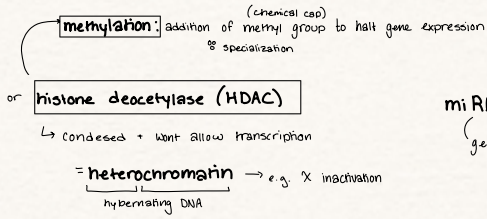 (chemical cap)
methylation: addition of methyl group to halt gene expression
∴ specialization
or histone deocetylase (HDAC)
↳ condesed + wont allow transcription
= heterochromatin → e.g. X inactivation
hybernating DNA
mi R
ge